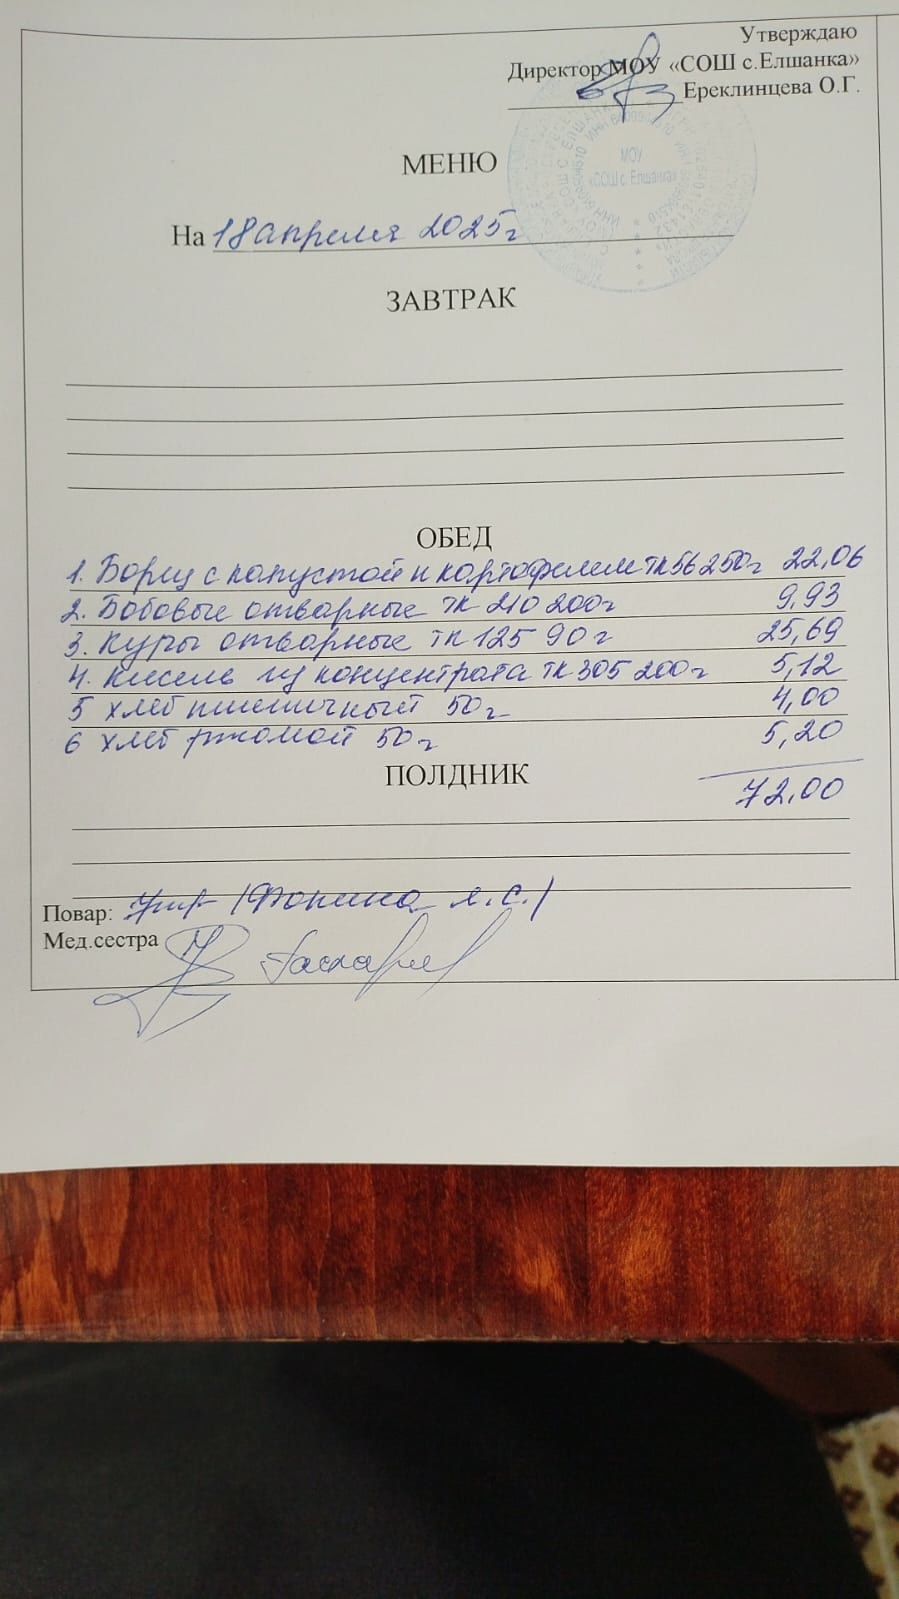 Утверждаю
Директор МОУ «СОШ с.Елшанка»
Ереклинцева О.Г.
МОУ
«СОШ с. Елшанка»
МЕНЮ
На 18 апреля 2025г
ЗАВТРАК
ОБЕД
1. Борщ с капустой и картофелем тк56 250г 22,06
2. Бобовые отварные тк 210 200г 9,93
3. Куры отварные тк 125 90г 25,69
4. Кисель из концентрата тк 305 200г 5,12
5 хлеб пшеничный 50г 4,00
6 хлеб ржаной 50г 5,20
ПОЛДНИК
72,00
Повар:
Мед.сестра